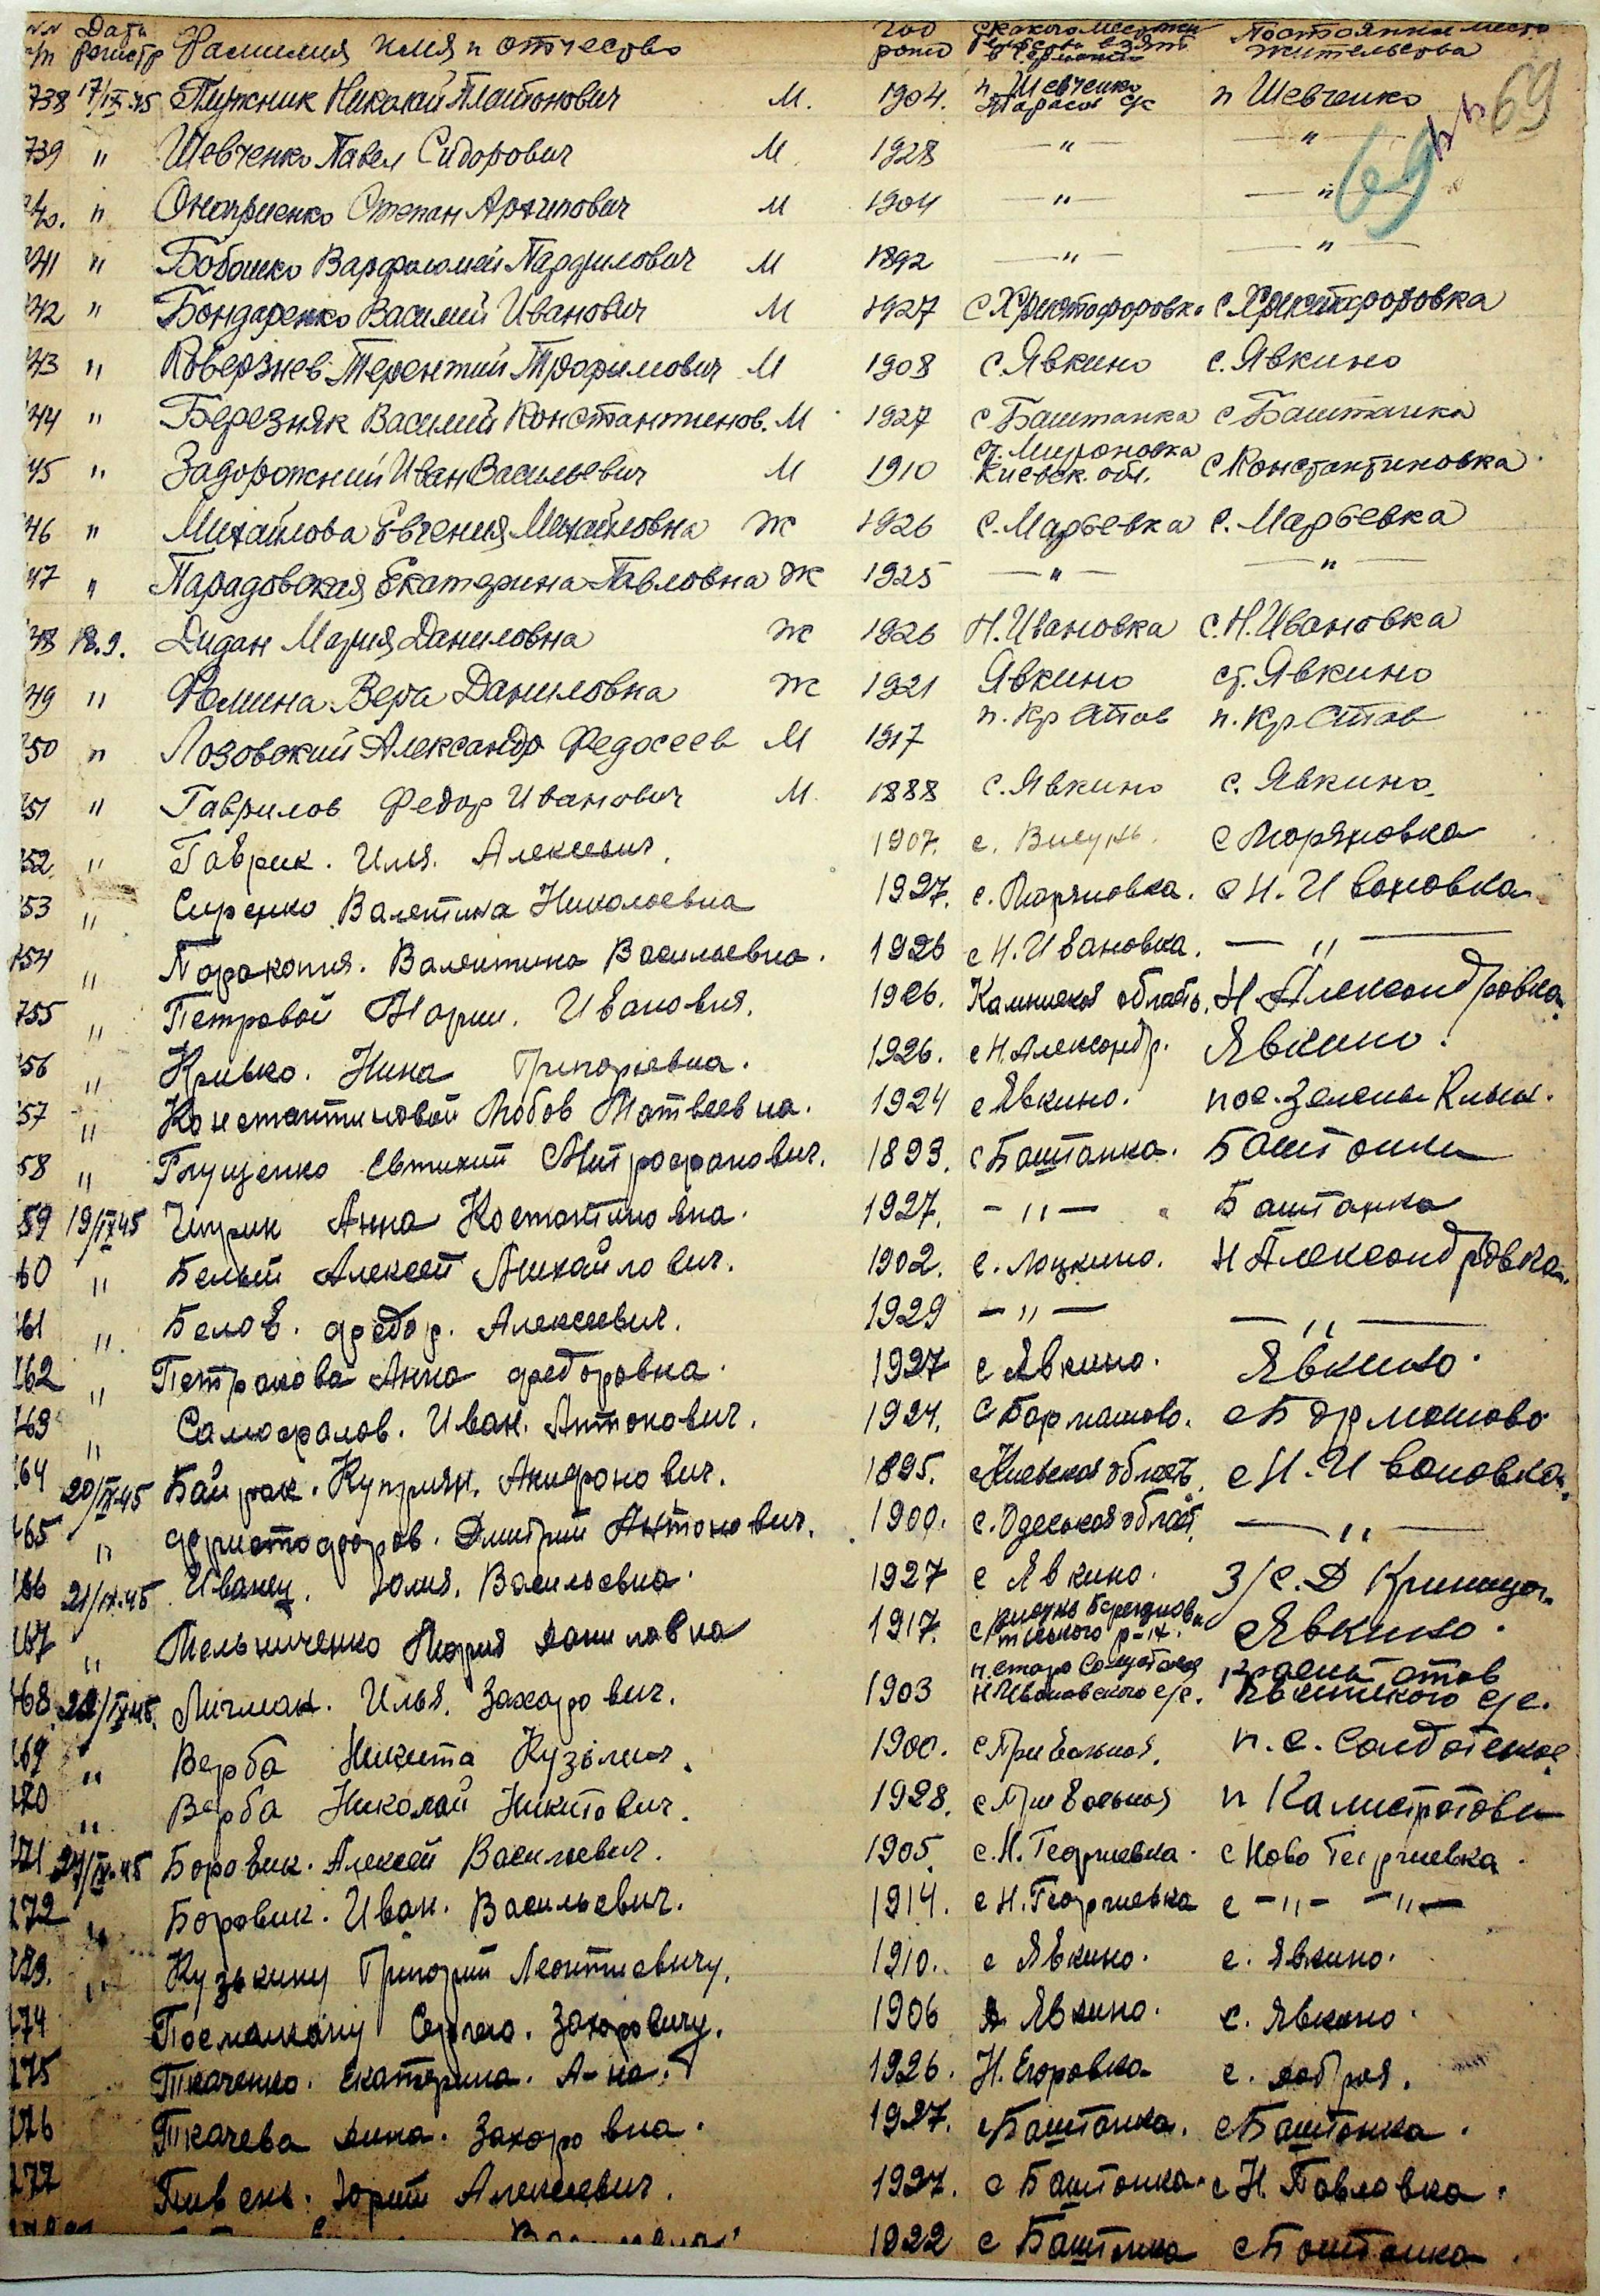 №№ п/п Дата регистр Фамилия имя и отчество год рожд с какого места взят в Постоянны место жительсва
738 17/IX-45 Пужник Николай Платонович М. 1904. п. Шевченко Тарасов с/с п Шевченко 69 69
739 " Шевченко Павел Сидорович М. 1928 — " — — " —
40. " Оноприенко Степан Архипович М 1904 — " — — " —
741 " Бобошко Варфоломей Парфилович М 1892 — " — — " —
742 " Бондаренко Василий Иванович М 1927 с Христофоровка с. Христофоровка
743 " Коверзнев Терентий Трофимович М 1908 с. Явкино с. Явкино
744 " Березняк Василий Константинов. М 1927 с Баштанка с Баштанка
745 " Задорожний Иван Васильевич М 1910 ст. Мироновка Киевск. обл. с Константиновка
746 " Михайлова Евгения Михайловна Ж 1926 с. Марьевка с. Марьевка
747 " Парадовская Екатерина Павловна Ж 1925 — " — — " —
748 18.9. Дидан Мария Даниловна Ж 1926 Н. Ивановка с. Н. Ивановка
749 " Фомина Вера Даниловна Ж 1921 Явкино ст. Явкино
750 " Лозовский Александр Федосеев М 1917 п. Кр Став п. Кр Став
751 " Гаврилов Федор Иванович М. 1888 с. Явкино с. Явкино
752 " Гаврик. Илья. Алексеевич. 1907. с. Висунь. с Марьяновка
753 " Сиренко Валетина Николаевна 1927. с. Марьяновка. с Н. Ивановка
754 " Поракопия. Валентина Васильевна. 1926 с Н. Ивановка. — " —
755 " Петровой Марии. Ивановня. 1926. область. Н Александровка.
756 " Кривко. Нина Григорьевна. 1926. с Н. Александр. Явкино.
757 " Константиновой Любов Матвеевна. 1924 с Явкино. пос. Зелены Клын.
758 " Глущенко Евтихий Митрофанович. 1893. с Баштанка. Баштанки
759 19/IX45 Анна Костантиновна. 1927. — " — Баштанка
760 " Белый Алексей Михайлович. 1902. с. Лоцкино. Н Александровка.
761 " Белов. федор. Алексеевич. 1929 — " — — " —
762 " Петракова Анна федоровна. 1927 с Явкино. Явкино.
763 " Самофалов. Иван. Антонович. 1924. с Бармашово. с Бармашово
764 20/IX-45 Байрак. Куприян. Анифронович. 1895. с Киевская область. с Н. Ивановка.
765 " фристофоров. Дмитрий Антонович. 1900. с. Одеськая област. — " —
766 21/IX-45 Иванец. Юлия. Васильевна. 1927 с Явкино. З/с. Д Криница.
767 " Мельниченко Мария Даниловна 1917. с Висунь Березнова р-н. с Явкино.
768 22/IX45. Личман. Илья. Захарович. 1903 Н. Ивановского с/с. Красны став Явкинского с/с.
769 " Верба Никита Кузьмич. 1900. с Привольная. п. с. Солдатское.
770 " Верба Николай Никитович. 1928. с Привольная п Калистратовки
771 24/IX-45 Боровик. Алексей Васильевич. 1905. с. Н. Георгиевка. с Ново Георгиевка.
772 " Боровик. Иван. Васильевич. 1914. с Н. Георгиевка с — " — — " —
773. " Кузькину Григорий Леонтиевичу. 1910. с Явкино. с. Явкино.
774 Сергею. Захаровичу. 1906 Явкино. с. Явкино.
775 Ткаченко. Екатерина. А-на. 1926. Н. Егоровка с. Добрая.
776 Ткачева Анна. Захаровна. 1927. с Баштанка. с Баштанка.
777 Пивень. Юрий Алексеевич. 1927. с Баштанка. с Н. Павловка.
1922 с Баштанка с Баштанка.